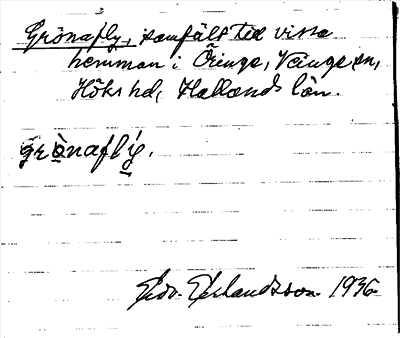 Grönafly, samfällt ted vissa
hemman i Öringe, Veinge sn,
Höks hd, Hallands län.
grònaflý.
Edv. Erlandsson 1936